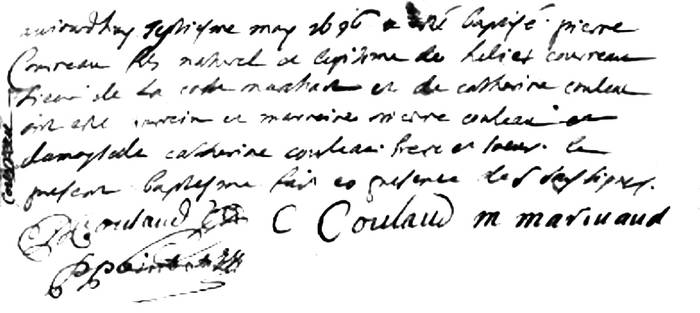 aujourdhuy septiesme may 1696 a esté baptisé pierre
Courreau fils naturel et legitime de helies courreau
sieur de la code marchant et de catherine couleau
ont esté parrein et marreine pierre couleau et
damoyselle catherine couleau frere et soeur le
present baptesme fait en presence des soussignes
Coulaud C Coulaud m marinaud
courreau